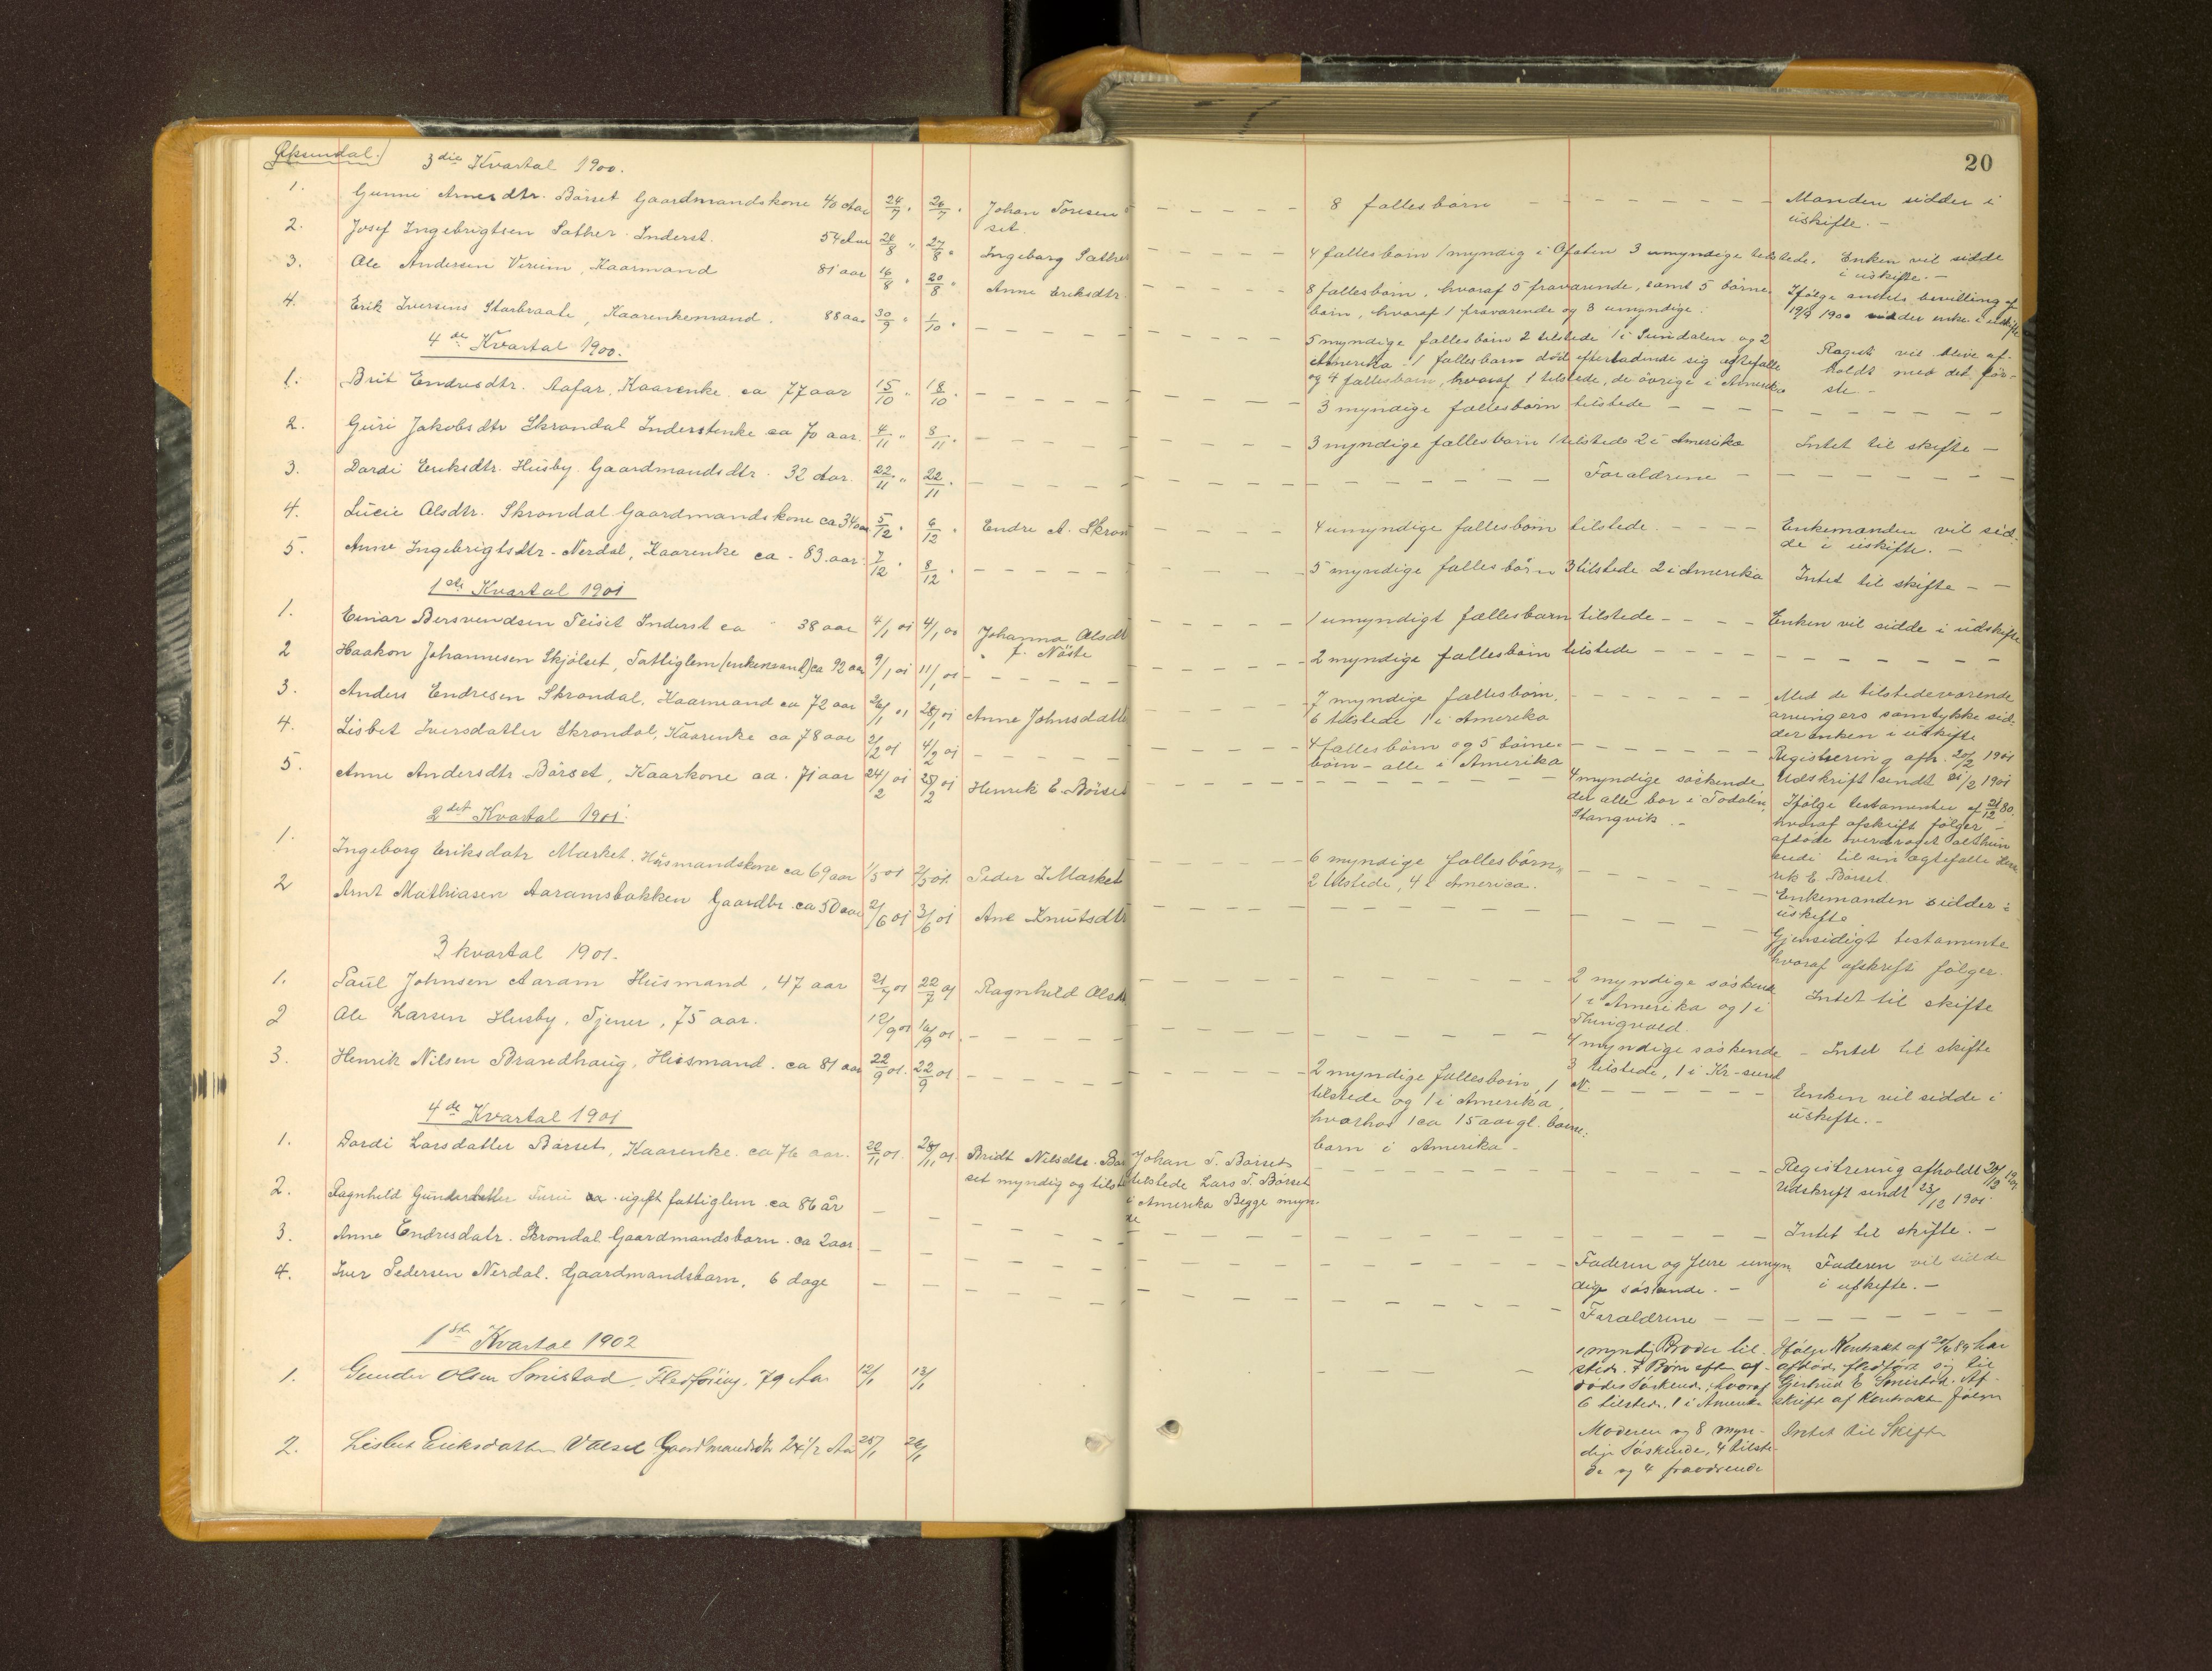 20
Øksendal.
3die Kvartal 1900.
1. Gunni Arnesdtr. Börset Gaardmandskone 40 Aar 24/7 " 26/7 " Johan Toresen
set.
8 fællesbörn Manden sidder i
uskifte. -
2. Josef Ingebrigtsen Sæther Inderst. 54 Aar 24/8 " 27/8 " Ingeborg Sæther
4 fællesbörn 1 myndig i Ofoten 3 umyndige tilstede. Enken vil sidde
i uskifte. -
3. Ole Andersen Virum, Kaarmand 81 aar 16/8 " 20/8 " Anne Eriksdtr.
8 fællesbörn, hvoraf 5 fraværende, samt 5 börne- Ifölge amtets bevilling af
börn, hvoraf 1 fraværende og 3 umyndige. 19/9 1900 sidder enke i uskifte
4. Erik Iversens Storbraate, Kaarenkemand. 88 aar 30/9 " 1/10 "
5 myndige fællesbörn 2 tilstede 1 i Sundalen og 2
Amerika. 1 fællesbarn död efterladende sig ægtefælle
og 4 fællesbarn, hvoraf 1 tilstede, de övrige i Amerika
Registr vil blive af-
holdt med det för-
ste. -
4de Kvartal 1900.
1. Brit Endresdtr. Aafar, Kaarenke ca 77 aar 15/10 " 18/10 "
3 myndige fællesbörn tilstede
2. Guri Jakobsdtr Skrondal Inderstenke ca 70 aar. 4/11 " 8/11 "
3 myndige fællesbörn 1 tilstede 2 i Amerika Intet til skifte -
3. Dordi Eriksdtr. Husby Gaardmandsdtr. 32 Aar. 22/11 " 22/11 "
Forældrene
4. Lucie Olsdtr. Skrondal Gaardmandskone ca 34 aar 5/12 " 6/12 " Endre A. Skron
4 umyndige fællesbörn tilstede. Enkemanden vil sid-
de i uskifte. -
5. Anne Ingebrigtsdtr. Nerdal, Kaarenke ca - 83 aar 7/12 " 8/12 "
5 myndige fællesbörn 3 tilstede 2 i Amerika Intet til skifte -
1ste Kvartal 1901
1. Einar Bersvendsen Teiset Inderst ca " 38 aar 4/1 01 4/1 00 Johanna Olsdt
" f. Nöste
1 umyndigt fællesbarn tilstede Enken vil sidde i udskifte
2 Haakon Johannesen Skjölset, Fattiglem (enkemand) ca 92 aar 9/1 01 11/1 01
2 myndige fællesbörn tilstede
3. Anders Endresen Skrondal, Kaarmand ca 72 aar 26/1 01 28/1 01 Anne Johnsdatte
7 myndige fællesbörn.
6 tilstede 1 i Amerika
Med de tilstedeværende
arvingers samtykke sid-
der enken i uskifte
4. Lisbet Iversdatter Skrondal, Kaarenke ca 78 aar 2/2 01 4/2 01
4 fællesbörn og 5 börne-
börn - alle i Amerika
Registrering afh. 20/2 1901
Udskrift sendt 21/2 1901
5. Anne Andersdtr Börset, Kaarkone ca. 71 aar 24/2 01 25/2 01 Henrik E. Börset
4 myndige söskende
der alle bor i Todalen,
Stangvik. -
Ifölge testamente af 21/12 80.
hvoraf afskrift fölger -
afdöde overdraget alt hun
eiede til sin ægtefælle Hen-
rik E. Börset.
2det Kvartal 1901
1. Ingeborg Eriksdatr Market. Husmandskone ca 69 aar 1/5 01 2/5 01. Peder I Market
6 myndige fællesbörn,
2 tilstede, 4 i America.
Enkemanden sidder i
uskifte
2 Arnt Mathiasen Aaramsbakken Gaardbr. ca 50 aar 2/6 01 3/6 01 Ane Knutsdtr
Gjensidigt testamente
hvoraf afskrift fölger.
3 kvartal 1901.
1. Paul Johnsen Aaram Husmand, 47 aar 21/7 01 22/7 01 Ragnhild Olsd
2 myndige söskende
1 i Amerika og 1 i
Thingvold.
Intet til skifte
2 Ole Larsen Husby, Tjener, 75 aar. 12/9 01 16/9 01.
4 myndige söskende
3 tilstede, 1 i Kr-sund
N.
- Intet til skifte
3. Henrik Nilsen Brandhaug, Husmand. ca 81 aar 22/9 01. 22/9 01
2 myndige fællesbörn, 1
tilstede og 1 i Amerika,
hvorhos 1 ca 15 aar gl. barne-
barn i Amerika -
Enken vil sidde i
uskifte. -
4de Kvartal 1901
1. Dordi Larsdatter Börset, Kaarenke. ca 76 aar. 22/11 01. 28/11 01. Bridt Nilsdtr. Bör Johan T. Börset
set myndig og tilste tilstede Lars T. Börset
i Amerika Begge myn-
de
Registrering afholdt 20/12 1901
Udskrift sendt 23/12 1901
2. Ragnhild Gunderdatter Furu ugift fattiglem ca 86 år
Intet til skifte. -
3. Anne Endresdatr. Skrondal Gaardmandsbarn. ca 2 aar.
Faderen og flere umyn-
dige söskende. -
Faderen vil sidde
i uskifte. -
4. Iver Pedersen Nerdal. Gaardmandsbarn, 6 dage
Forældrene
1ste Kvartal 1902
1. Gunder Olsen Smistad, Fledföring, 79 Aar 12/1 13/1
1 myndig Broder til-
stede. 7 Börn efter af-
dödes Söskende, hvoraf
6 tilstede. 1 i Amerika
Ifölge Kontrakt af 20/4 89 har
afdöde fledfört sig til
Gjertrud E Smistad. Af-
skrift af Kontrakten fölger
2. Lisbet Eriksdatter Vulset Gaardmandsdtr 24 1/2 Aar 25/1 26/1
Moderen og 8 myn-
dige Söskende, 4 tilste-
de og 4 fraværende
Intet til Skifte